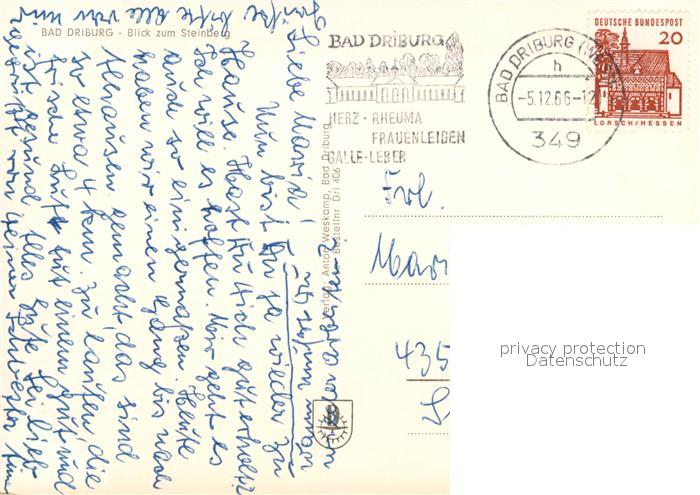 BAD DRIBURG - Blick zum Steinberg
BAD DRIBURG
HERZ · RHEUMA
FRAUENLEIDEN
GALLE · LEBER
BAD DRIBURG (WESTF)
h
-5.12.66-12
349
DEUTSCHE BUNDESPOST
20
LORSCH/HESSEN
Verlag Anton Weskamp, Bad Driburg
Bestellnr. Dri 406
Liebe Maria!
Nun bist Du ja wieder zu
Hause. Hast Du Dich gut erholt?
Ich will es hoffen. Mir geht es
auch so einigermaßen. Heute
haben wir einen Gang bis nach
Alhausen gemacht das sind
so etwa 4 km. zu laufen die
frische Luft tut einem gut und
ist gesund. Alles Gute sei lieb
gegrüßt von Deiner Schwester
Grüße bitte alle von mir
Frl.
Mar
435
privacy protection
Datenschutz